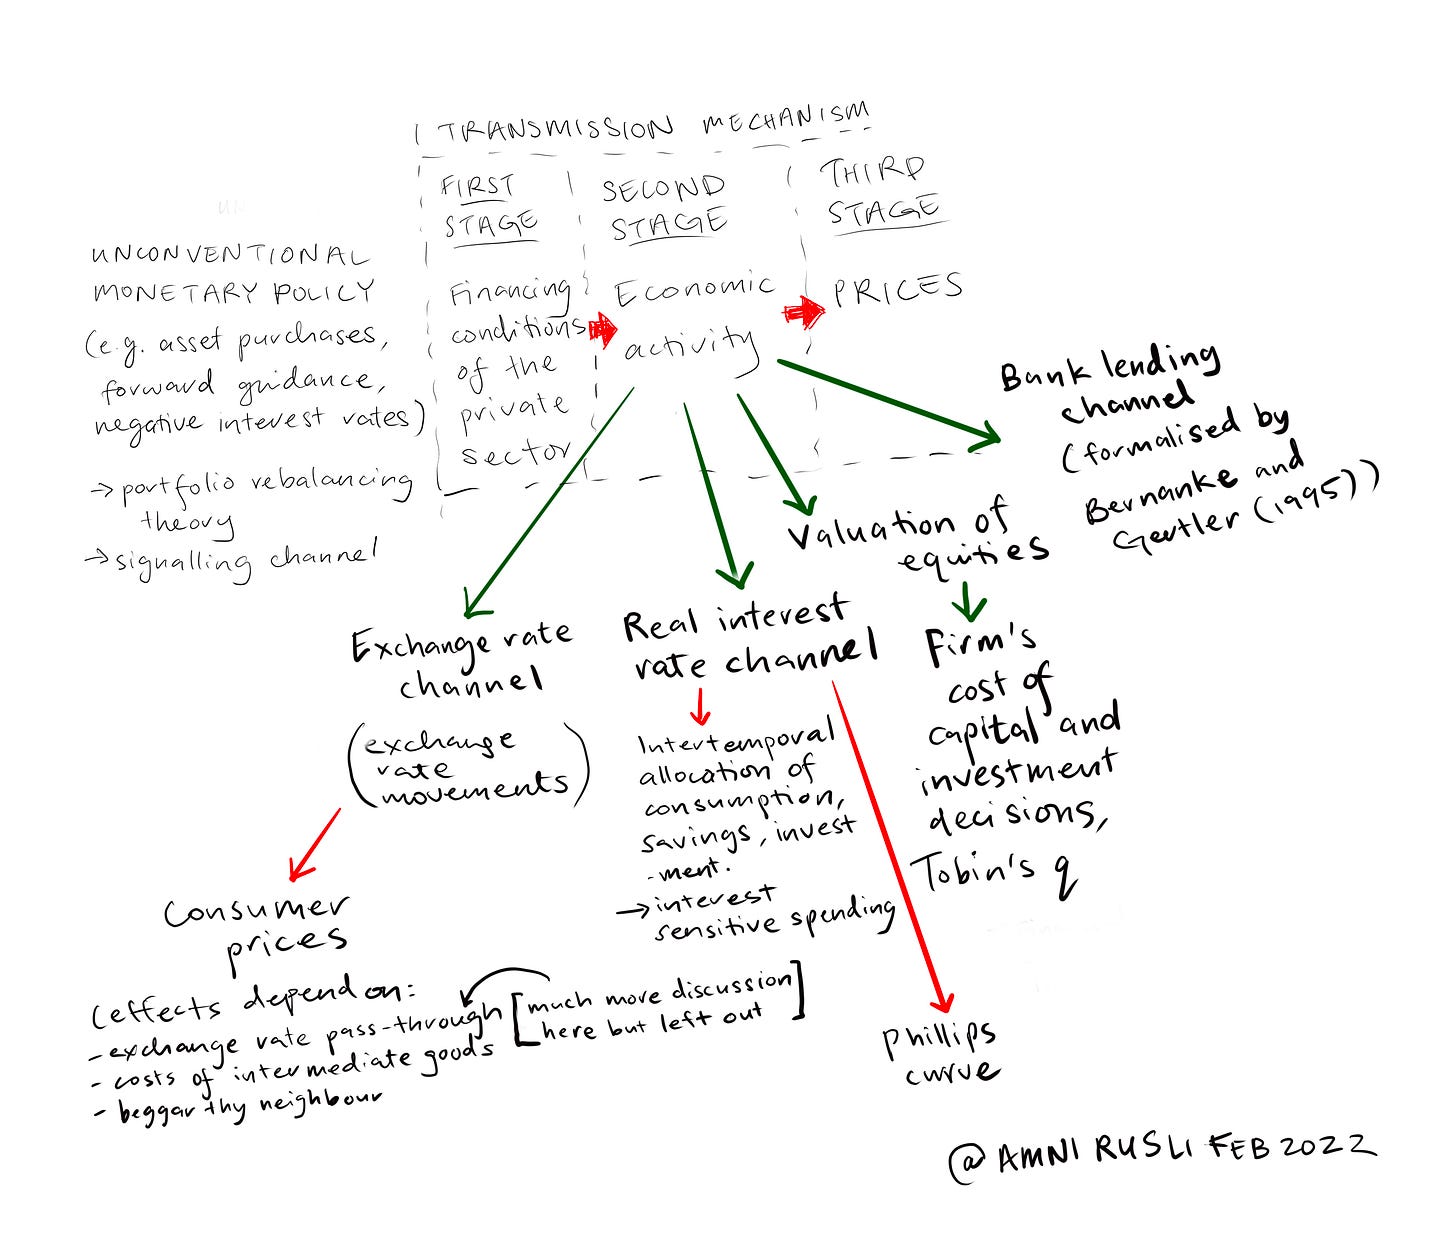 TRANSMISSION MECHANISM
FIRST
STAGE
SECOND
STAGE
THIRD
STAGE
UNCONVENTIONAL
MONETARY POLICY
(e.g. asset purchases,
forward guidance,
negative interest rates)
→ portfolio rebalancing
theory
→ signalling channel
Financing
conditions
of the
private
sector
Economic
activity
PRICES
Bank lending
channel
(formalised by
Bernanke and
Gertler (1995))
Valuation of
equities
Firm's
cost of
capital and
investment
decisions,
Tobin's q
Real interest
rate channel
Intertemporal
allocation of
consumption,
savings, invest
-ment.
→ interest
sensitive spending
Phillips
curve
Exchange rate
channel
(exchange
rate
movements)
Consumer
prices
(effects depend on:
- exchange rate pass-through
- costs of intermediate goods
- beggar thy neighbour
[much more discussion
here but left out]
@AMNI RUSLI FEB 2022